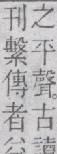 之平聲古讀
刊繫傳者